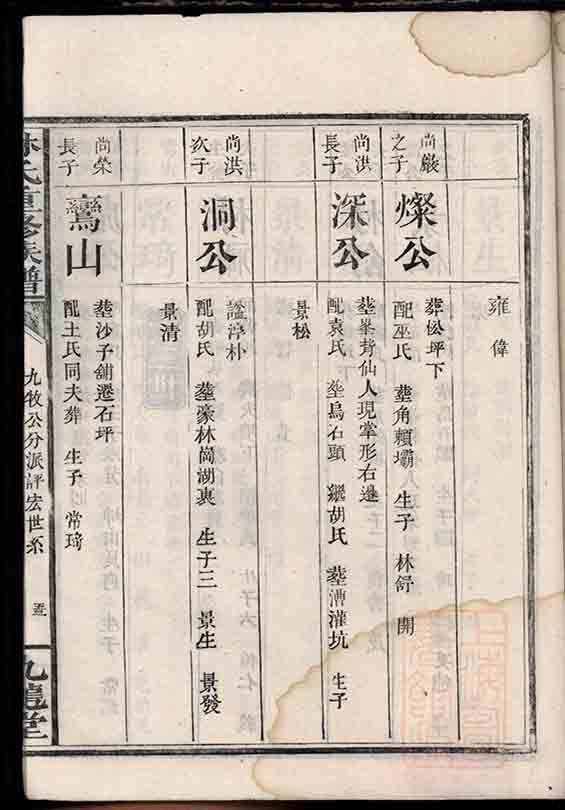 雍 偉
尚嚴
之子
燦公
葬松坪下
配巫氏 塟角賴壩 生子 林舒 開
尚洪
長子
深公
塟峯背仙人現掌形右邊
配袁氏 塟烏石頭 繼胡氏 塟漕灌坑 生子
景松
尚洪
次子
洞公
諡淳朴
配胡氏 塟豪林崗湖裏 生子三 景生 景發
景清
尚榮
長子
鸞山
塟沙子舖遷石坪
配土氏同夫葬 生子 常琦
林氏重修族譜
九牧公分派評宏世系
九龍堂